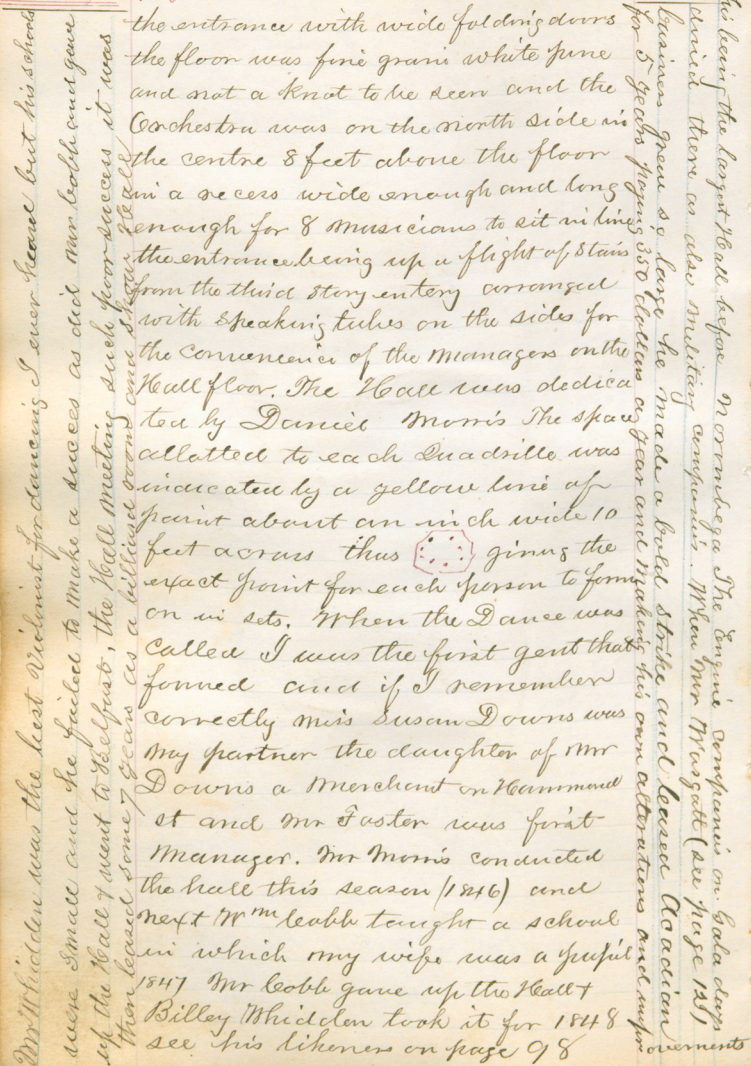 the entrance with wide folding doors
the floor was fine grain white pine
and not a knot to be seen and the
Orchestra was on the north side in
the centre 8 feet above the floor
in a recess wide enough and long
enough for 8 musicians to sit in line
the entrance being up a flight of Stairs
from the third story entery arranged
with speaking tubes on the sides for
the convenience of the managers on the
Hall floor. The Hall was dedica
ted by Daniel Morris The space
allotted to each Quadrille was
indicated by a yellow line of
paint about an inch wide 10
feet across thus giving the
exact point for each person to form
on in sets. When the Dance was
called I was the first gent that
formed and if I remember
correctly miss Susan Downs was
my partner the daughter of Mr
Downs a merchant on Hammond
st and Mr Foster was first
Manager. Mr Morris conducted
the hall this season (1846) and
next Wm Cobb taught a school
in which my wife was a pupil
1847 Mr Cobb gave up the Hall &
Billey Whidden took it for 1848
see his likeness on page 98
Mr Whidden was the best Violinist for dancing I ever heard but his schools
were small and he failed to make a success as did Mr Cobb and gave
up the Hall & went to Belfast, the Hall meeting such poor success it was
then leased some 7 years as a billiard room and show Hall
this being the largest Hall before Norombega The Engine companies on Gala days
dined there as also military companies. When Mr Wasgatt (see page 121)
business grew so large he made a bold strike and leased Acadian
for 5 years paying 350 dollars a year and making his own alterations and improvements